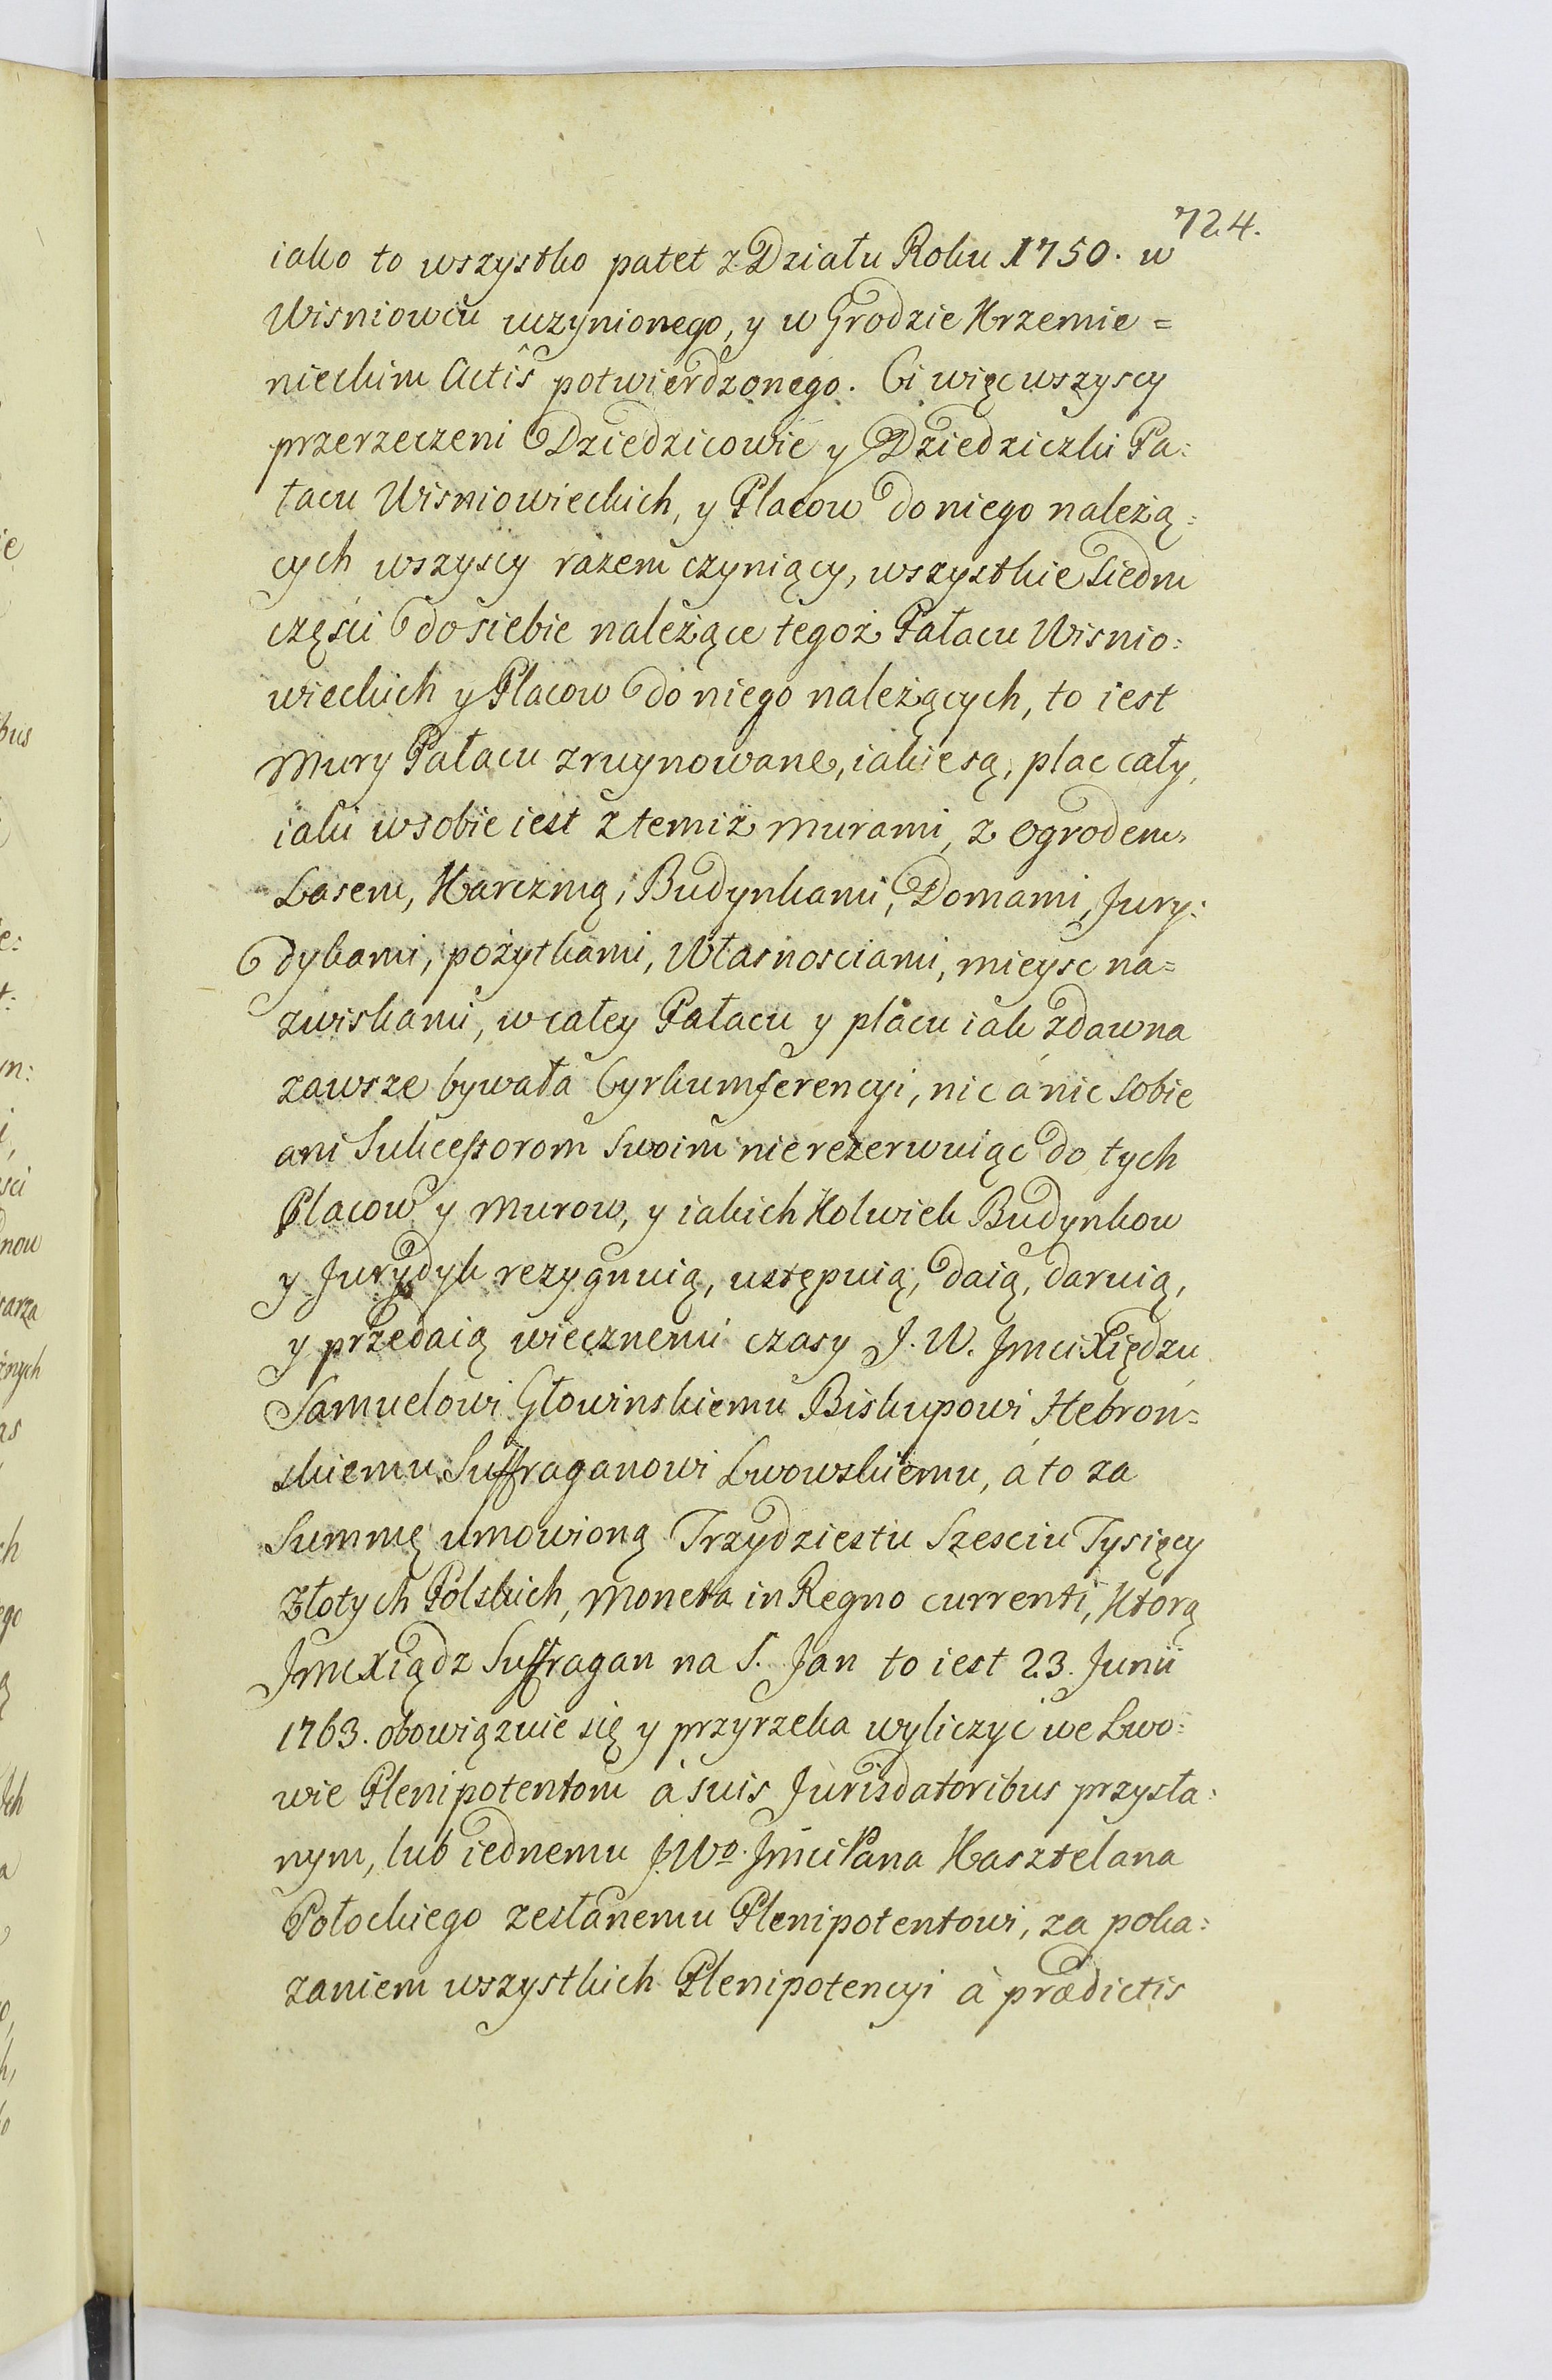 724.
iako to wszystko patet z Działu Roku 1750. w
Wisniowcu uczynionego, y w Grodzie Krzemie=
nieckim Actis potwierdzonego. Ci więc wszyscy
przerzeczeni Dziedzicowie y Dziedziczki Pa:
łacu Wisniowieckich, y Placow do niego należą:
cych wszyscy razem czyniący, wszystkie siedm
częsci do siebie należące tegoż Pałacu Wisnio:
wieckich y Placow do niego należących, to iest
Mury Pałacu zruynowane, iakie są, plac cały,
iaki w sobie iest z temiż murami, z ogrodem,
Lasem, Karczmą, Budynkami, Domami, Jury:
dykami, pożytkami, Własnosciami, mieysc na=
zwiskami, w całey Pałacu y placu iak zdawna
zawsze bywała Cyrkumferencyi, nic á nic sobie
ani Sukcessorom swoim nie rezerwuiąc do tych
Placow y Murow, y iakich Kolwiek Budynkow
y Jurydyk rezygnuią, ustępuią, daią, daruią,
y przedaią wiecznemi czasy J. W. Jmci Xiędzu
Samuelowi Głowinskiemu Biskupowi Hebron=
skiemu Suffraganowi Lwowskiemu, á to za
Summę umowioną Trzydziestu Szesciu Tysięcy
Złotych Polskich, Moneta in Regno currenti, Ktorą
Jmc Xiądz Suffragan na S. Jan to iest 23. Junii
1763. obowiązuie się y przyrzeka wyliczyć we Lwo:
wie Plenipotentom à suis Jurisdatoribus przysła:
nym, lub iednemu J.Wo. Jmci Pana Kasztelana
Połockiego zesłanemu Plenipotentowi, za poka:
zaniem wszystkich Plenipotencyi à prædictis